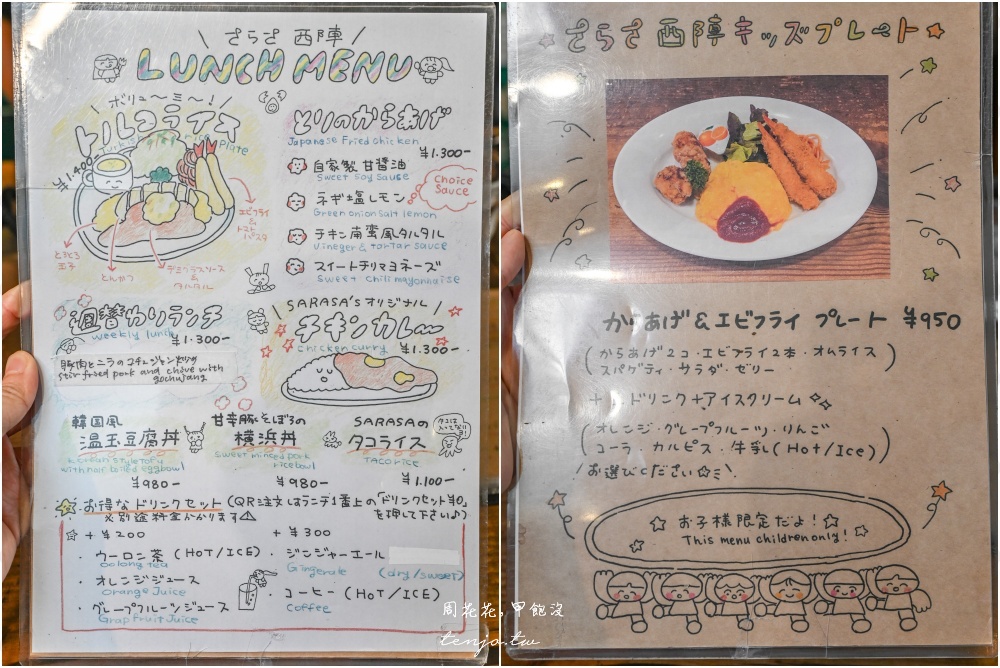 さらさ 西陣
LUNCH MENU
ボリュ〜ミ〜!
トルコライス
Turkish rice Plate
¥1.400-
エビフライ
&
トマト
パスタ
とろとろ
玉子
とんかつ
デミグラスソース
&
タルタル
とりのからあげ
Japanese Fried chicken
¥1.300-
自家製 甘醤油
Sweet Soy Sauce
choice
Sauce
ネギ塩レモン
Green onion salt lemon
チキン南蛮風タルタル
Vineger & tartar sauce
スイートチリマヨネーズ
Sweet chili mayonnaise
週替わりランチ
weekly lunch
¥1.300-
豚肉とニラのコチュジャン炒め
stir fried pork and chive with
gochujang
SARASA'sオリジナル
チキンカレー
chicken curry
¥1.300-
韓国風
温玉豆腐丼
Korean style tofu
with half boiled egg bowl
¥980-
甘辛豚そぼろの
横浜丼
sweet minced pork
rice bowl
¥980-
SARASAの
タコライス
TACO rice
¥1.100-
タコは
入ってないヨ
お得なドリンクセット(QR注文はランチ1番上の「ドリンクセット¥0」
※別途料金かかります⚠ を押して下さい♪)
+¥200
・ウーロン茶(HOT/ICE)
Oolong tea
・オレンジジュース
Orange Juice
・グレープフルーツジュース
Grap Fruit Juice
+¥300
・ジンジャーエール
Gingerale (dry/sweet)
・コーヒー(HOT/ICE)
Coffee
さらさ 西陣 キッズプレート
からあげ&エビフライ プレート ¥950
(からあげ2コ・エビフライ2本・オムライス
スパゲティ・サラダ・ゼリー)
+ドリンク+アイスクリーム
(オレンジ・グレープフルーツ・りんご
コーラ・カルピス・牛乳(Hot/Ice))
/お選びください☆ミ\
お子様限定だよ!
This menu children only!
周花花,甲飽沒
tenjo.tw